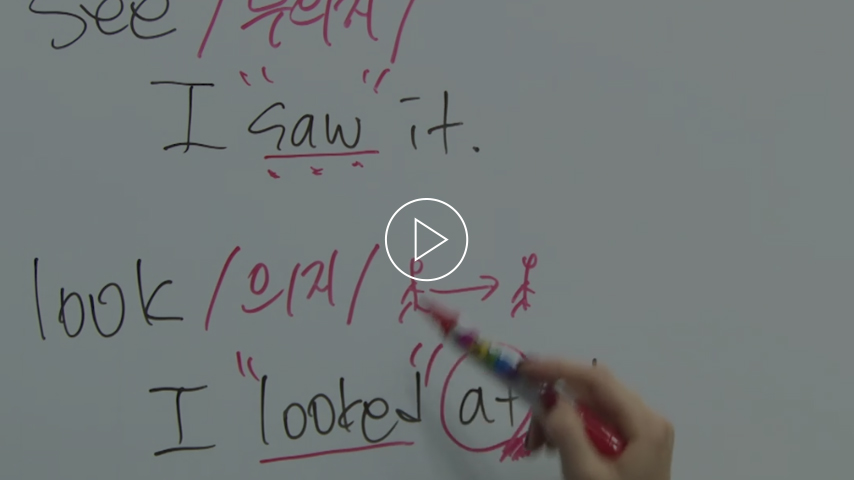 see /무의지/
I "saw" it.
look /의지/ →
I "looked" at